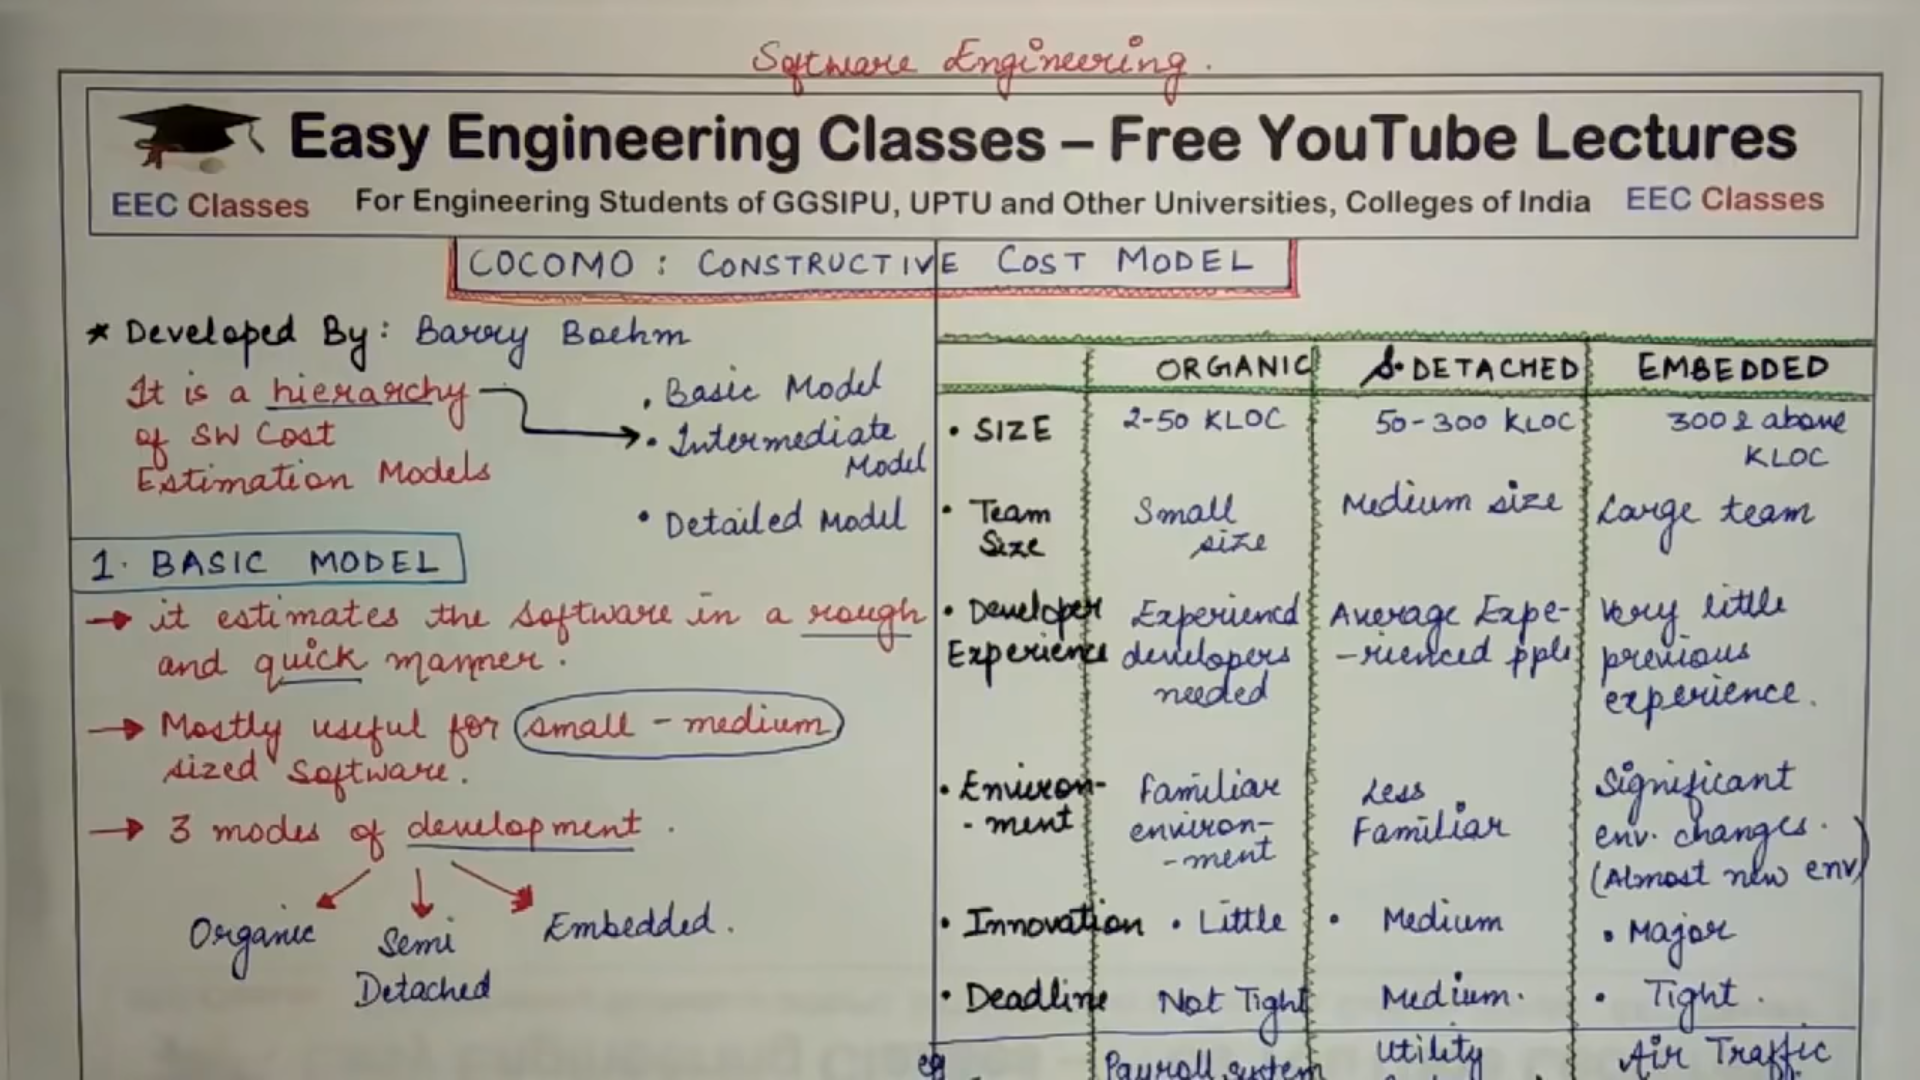 Software Engineering.
Easy Engineering Classes – Free YouTube Lectures
EEC Classes For Engineering Students of GGSIPU, UPTU and Other Universities, Colleges of India EEC Classes
COCOMO : CONSTRUCTIVE COST MODEL
* Developed By: Barry Boehm
It is a hierarchy
of SW Cost
Estimation Models
. Basic Model
• Intermediate
Model
• Detailed Model
1. BASIC MODEL
→ it estimates the software in a rough
and quick manner.
→ Mostly useful for small - medium
sized software.
→ 3 modes of development.
Organic
Semi
Detached
Embedded.
ORGANIC S. DETACHED EMBEDDED
• SIZE 2-50 KLOC 50-300 KLOC 300 & above
KLOC
• Team Small Medium size Large team
Size size
• Developer Experienced Average Expe- Very little
Experience developers -rienced pple previous
needed experience.
• Environ- Familiar Less Significant
-ment environ- Familiar env. changes.
-ment (Almost new env)
• Innovation • Little • Medium • Major
• Deadline Not Tight Medium. • Tight.
eg Payroll system Utility Air Traffic